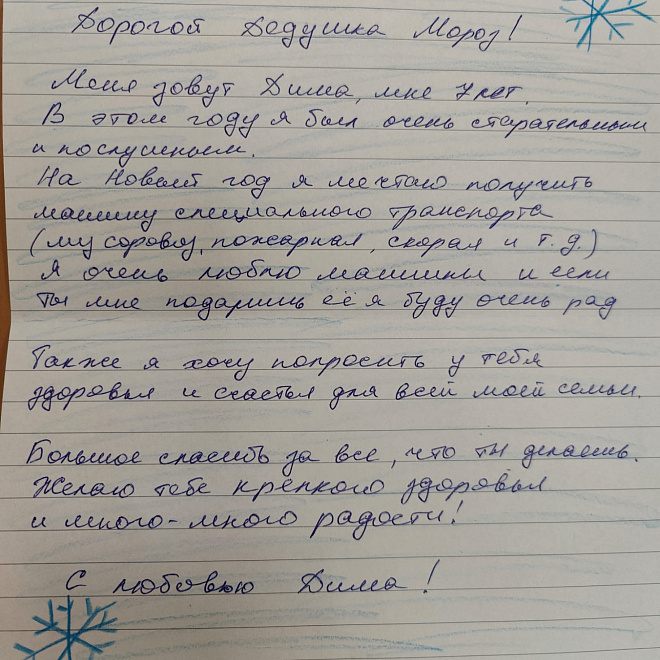 Дорогой Дедушка Мороз!
Меня зовут Дима, мне 7 лет.
В этом году я был очень старательным
и послушным.
На Новый год я мечтаю получить
машину специального транспорта
(мусоровоз, пожарная, скорая и т.д.)
Я очень люблю машинки и если
ты мне подаришь её я буду очень рад
Также я хочу попросить у тебя
здоровья и счастья для всей моей семьи.
Большое спасибо за все, что ты делаешь.
Желаю тебе крепкого здоровья
и много-много радости!
С любовью Дима!